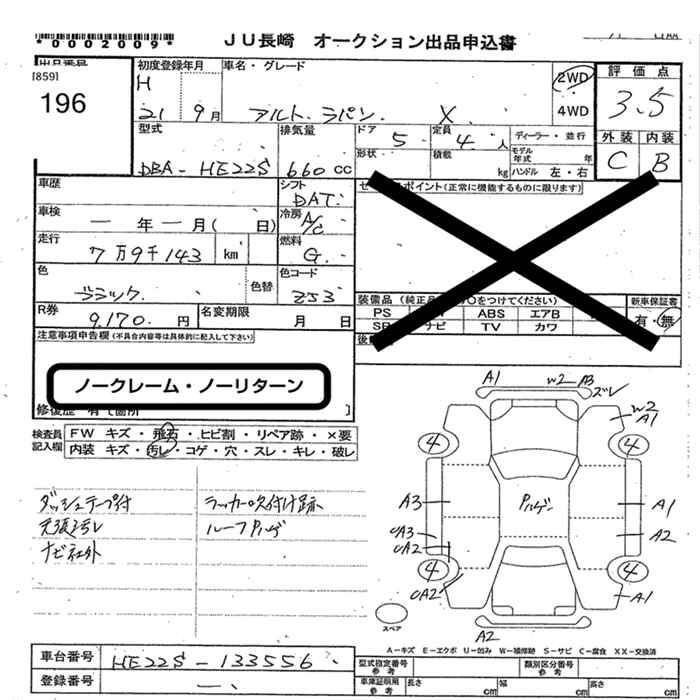 *0002009* JU長崎 オークション出品申込書
出品番号 初度登録年月 車名・グレード 2WD 評価点
[859] H
196 21 9月 アルト ラパン X 4WD 3.5
型式 排気量 ドア 5 定員 4人 ディーラー・並行 外装 内装
DBA-HE22S 660cc 形状 積載 kg モデル年式 年 ハンドル 左・右 C B
車歴 シフト DAT セールスポイント(正常に機能するものに限ります)
車検 ー年ー月( 日) 冷房 A/C
走行 7万9千143 km 燃料 G
色 ブラック 色替 色コード Z53
R券 9,170円 名変期限 月 日 装備品 (純正品 ○をつけてください) 新車保証書
PS ABS エアB 有・無
ナビ TV カワ
注意事項申告欄(不具合内容等は具体的に記入して下さい)
ノークレーム・ノーリターン
修復歴 有で箇所 ]
検査員 FW キズ・飛石・ヒビ割・リペア跡・×要
記入欄 内装 キズ・汚レ・コゲ・穴・スレ・キレ・破レ
ダッシュテープ付 ラッカー吹付け跡
天張汚レ ルーフハゲ
ナビ社外
A1 W2 A3 ズレ
W2 A1
4 4
A3 ハゲ A1
A3 A2
A2
4 4
A2 A1
スペア A2
A-キズ E-エクボ U-凹み W-補修跡 S-サビ C-腐食 XX-交換済
車台番号 HE22S-133556 型式指定番号 参考 類別区分番号 参考
登録番号 ー 車庫証明用 参考 長さ cm 幅 cm 高さ cm